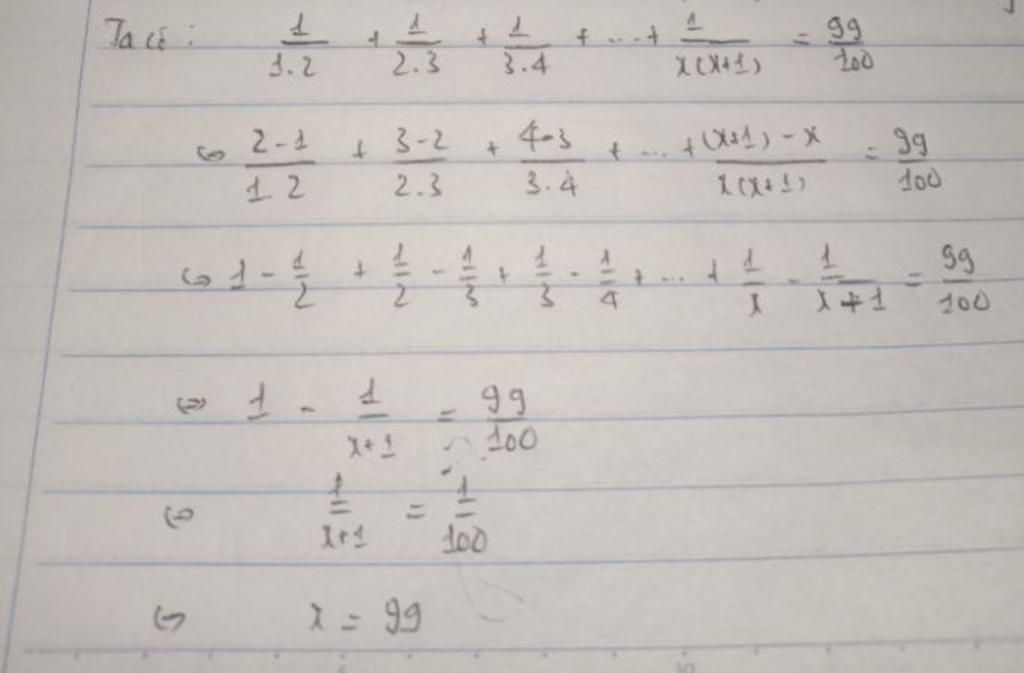 Ta có: 1/1.2 + 1/2.3 + 1/3.4 + ... + 1/x(x+1) = 99/100
⇔ 2-1/1.2 + 3-2/2.3 + 4-3/3.4 + ... + (x+1)-x/x(x+1) = 99/100
⇔ 1 - 1/2 + 1/2 - 1/3 + 1/3 - 1/4 + ... + 1/x - 1/x+1 = 99/100
⇔ 1 - 1/x+1 = 99/100
⇔ 1/x+1 = 1/100
⇔ x = 99